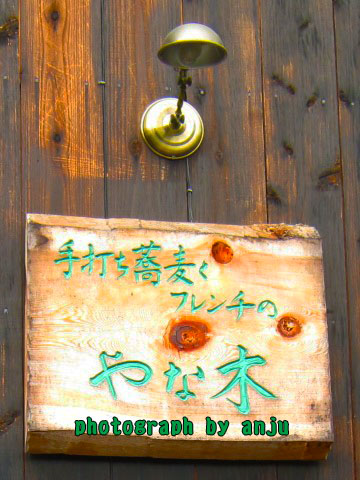 手打ち蕎麦と
フレンチの
やな木
photograph by anju